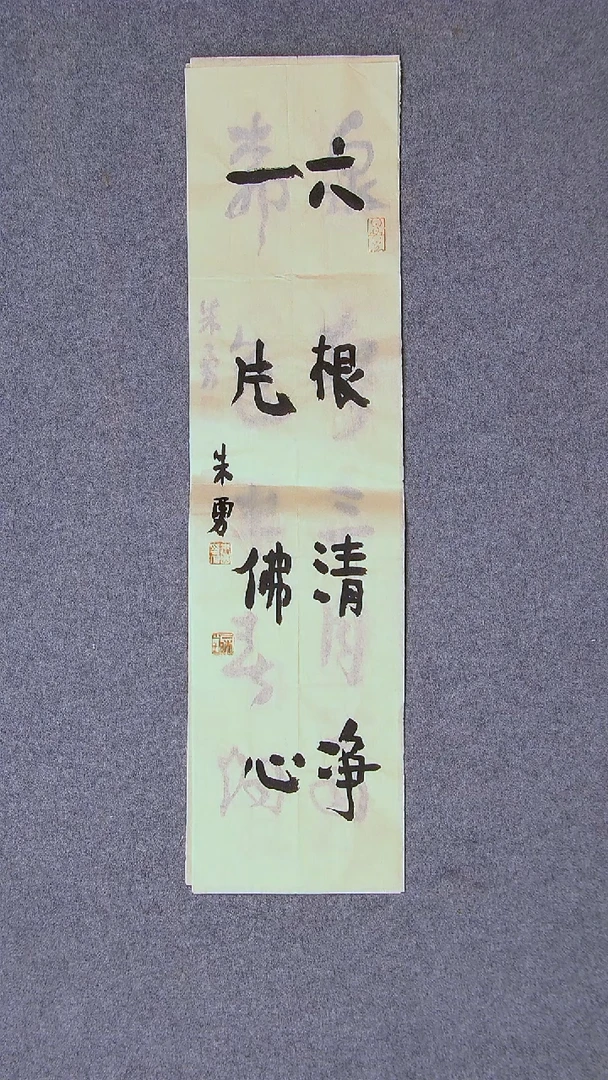 六根清净
一片佛心
朱勇